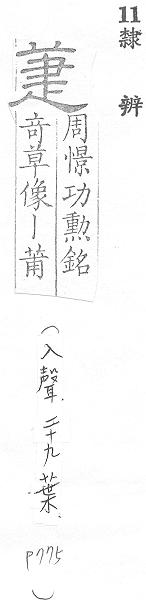 11 隸 辨
萐
周憬功勲銘
奇草像丨莆
（入聲．二十九葉．P775）